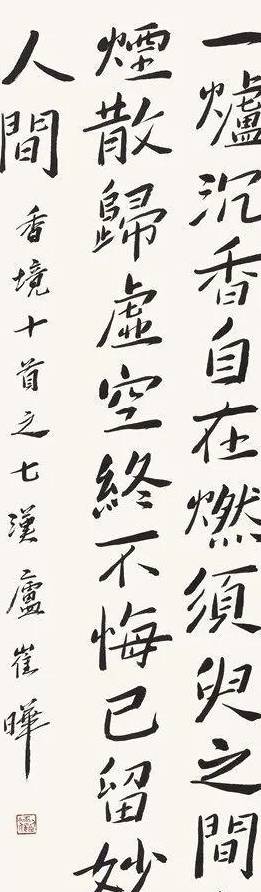 一爐沉香自在燃須臾之間
煙散歸虛空終不悔已留妙
人間
香境十首之七漢廬崔曄